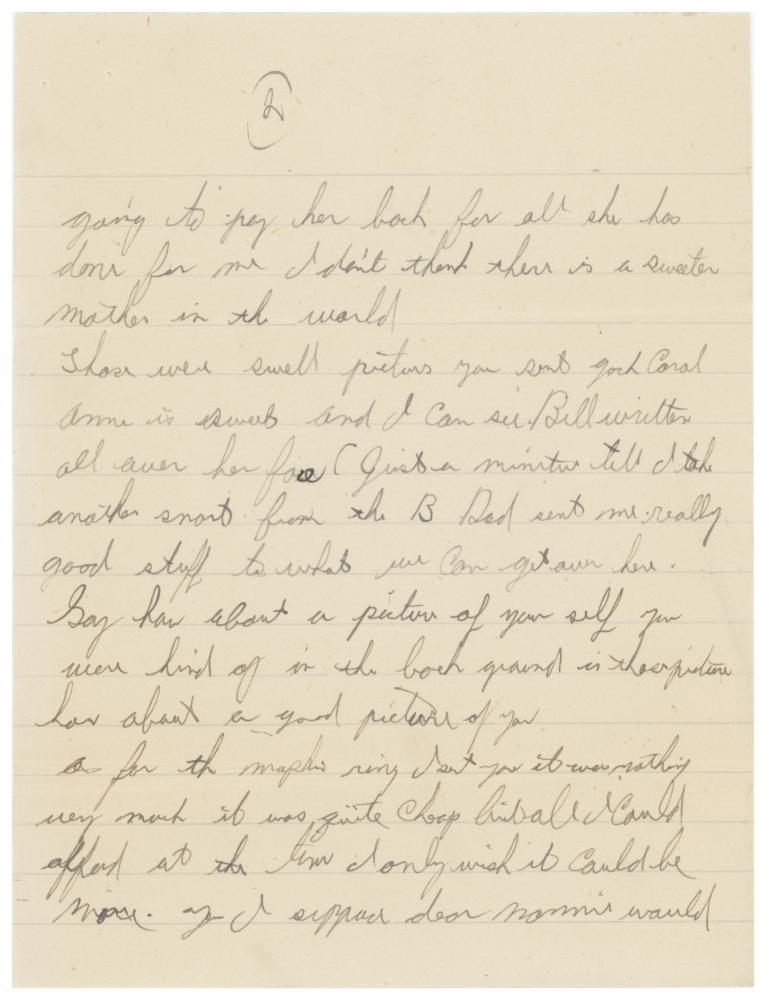 2
going to pay her back for all she has
done for me I don't think there is a sweeter
mother in the world
Those were swell pictures you sent gosh Coral
Anne is sweet and I can see Bill written
all over her face (Just a minitue till I take
another snort from the B Dad sent me really
good stuff to what we can get over here.
Say how about a picture of your self you
were kind of in the back ground in those picture
how about a good picture of you
as for the ring I sent you it was nothing
very much it was quite cheap but all I could
afford at the time I only wish it could be
more. I suppose dear Mommie would